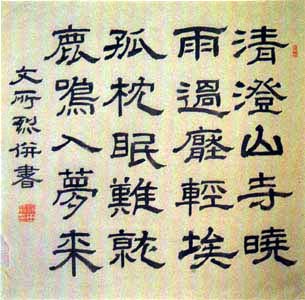 清澄山寺曉
雨過壓輕埃
孤枕眠難就
鹿鳴入夢来
文所烈併書